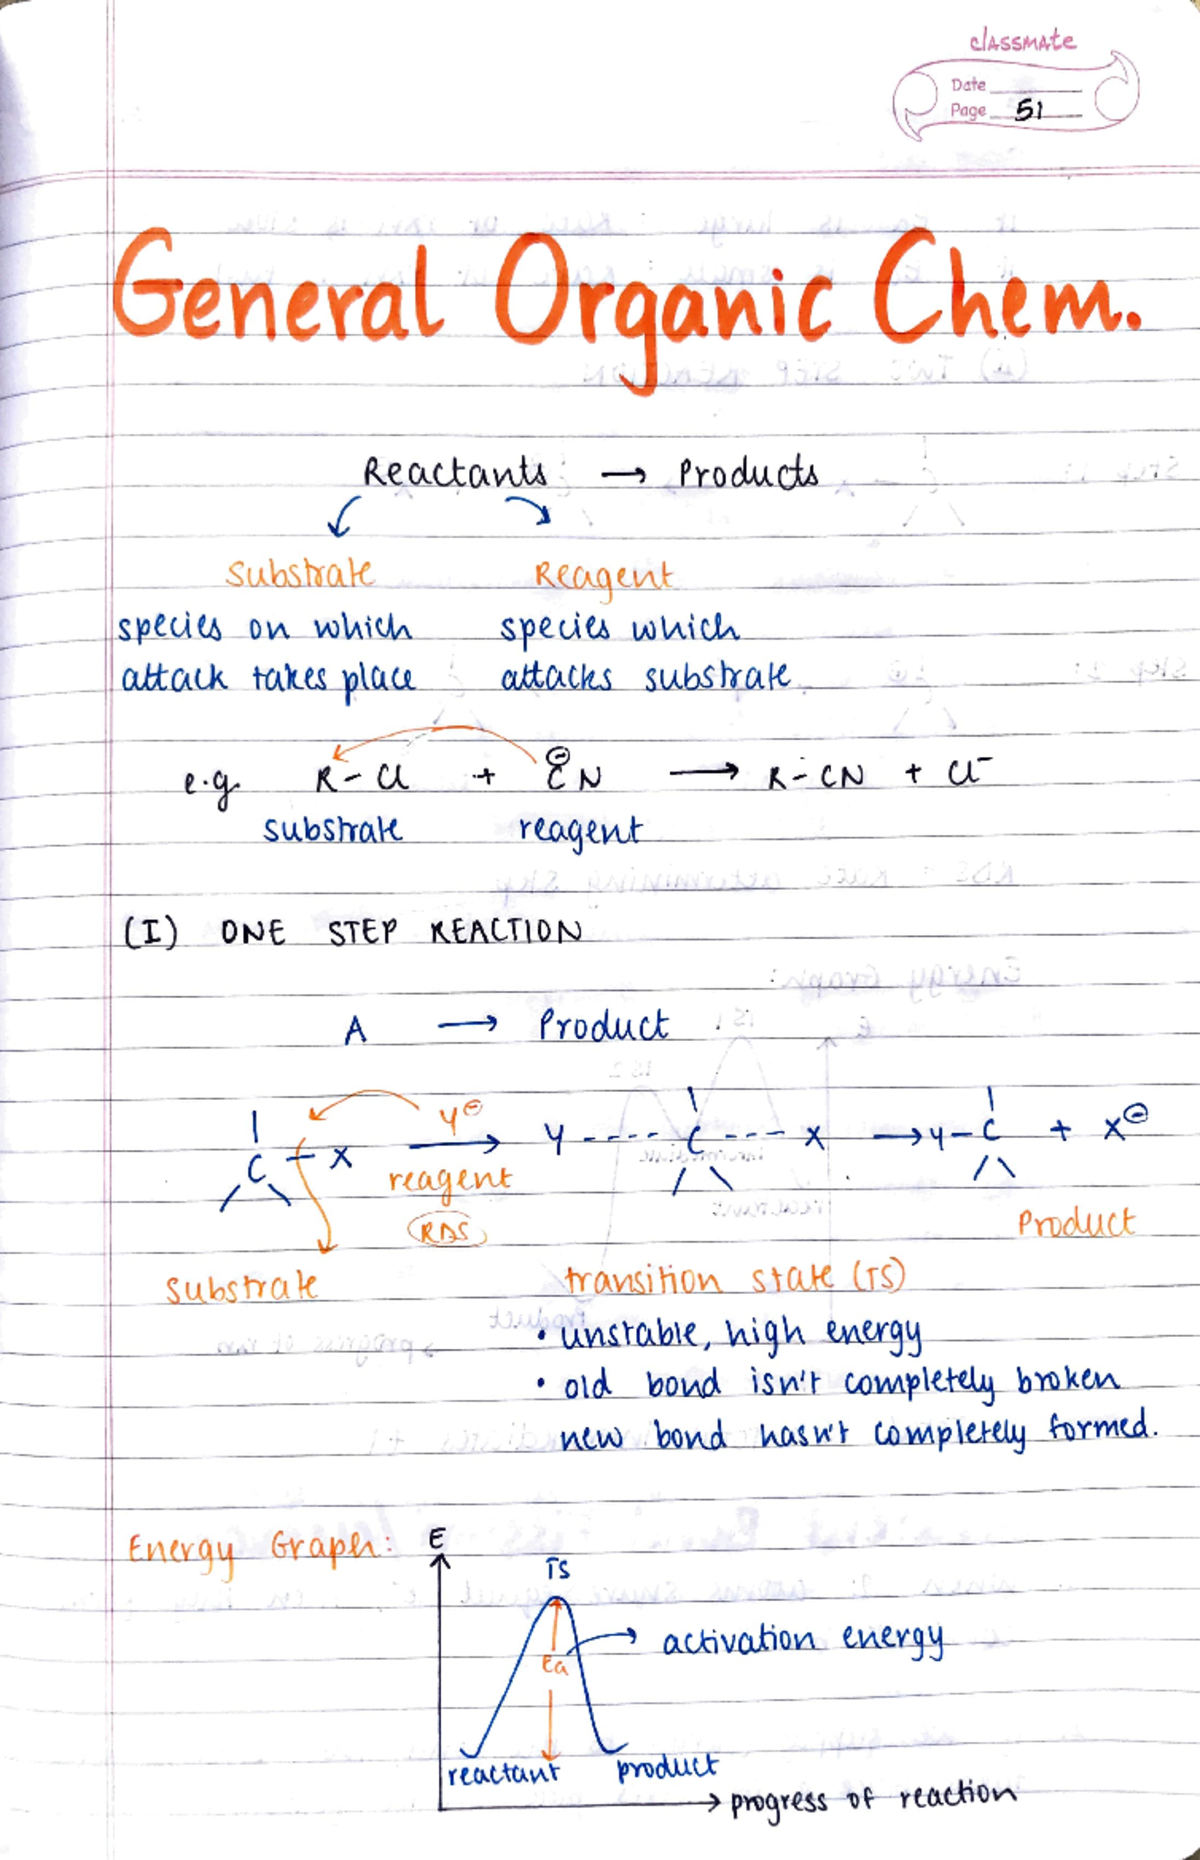 classmate
Date
Page 51
General Organic Chem.
Reactants → Products
Substrate Reagent
species on which species which
attack takes place attacks substrate.
e.g. R-Cl + ⊖CN → R-CN + Cl⁻
substrate reagent
(I) ONE STEP REACTION
A → Product
C X Y⊖ → Y ---- C --- X → Y-C + X⊖
reagent
RDS
Product
Substrate
transition state (TS)
• unstable, high energy
• old bond isn't completely broken
new bond hasn't completely formed.
Energy Graph: E
TS
activation energy
Ea
reactant product
→ progress of reaction